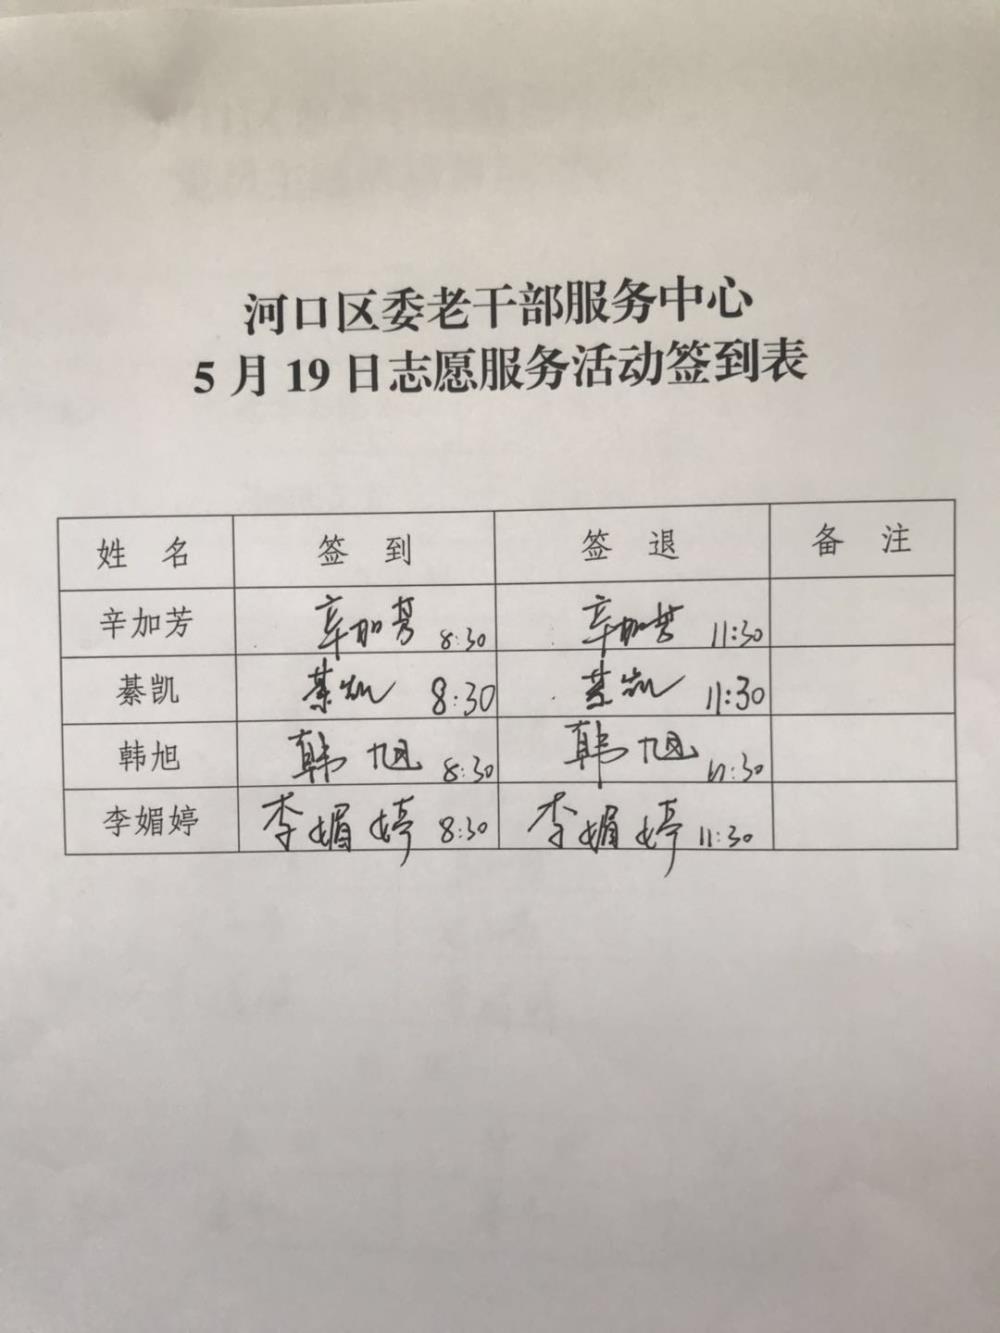 河口区委老干部服务中心
5月19日志愿服务活动签到表
姓 名 签 到 签 退 备 注
辛加芳 辛加芳 8:30 辛加芳 11:30
綦凯 綦凯 8:30 綦凯 11:30
韩旭 韩旭 8:30 韩旭 11:30
李媚婷 李媚婷 8:30 李媚婷 11:30